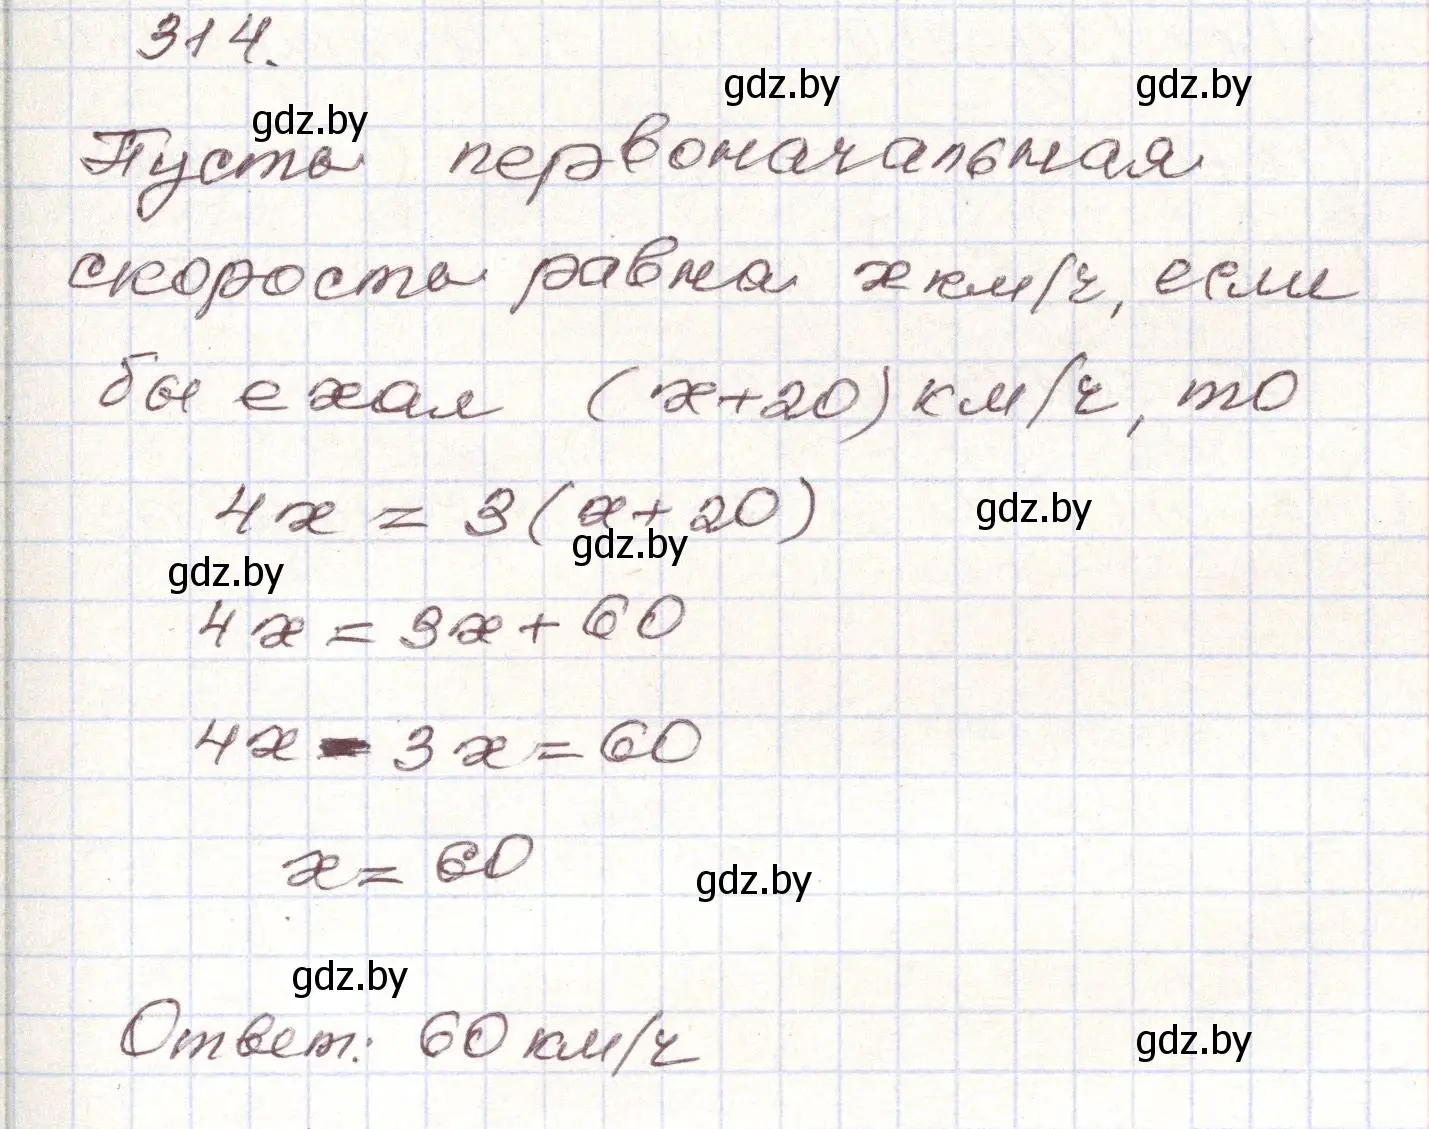 314.
gdz.by gdz.by
gdz.by
Пусть первоначальная
скорость равна x км/ч, если
бы ехал (x+20) км/ч, то
4x = 3(x+20) gdz.by
gdz.by
gdz.by
4x = 3x + 60
4x - 3x = 60
x = 60
gdz.by
gdz.by
Ответ: 60 км/ч
gdz.by